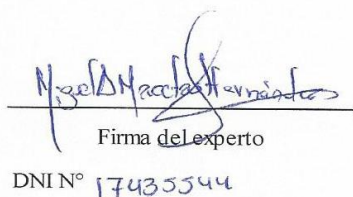 Miguel D Macías Hernández
Firma del experto
DNI N° 17435544